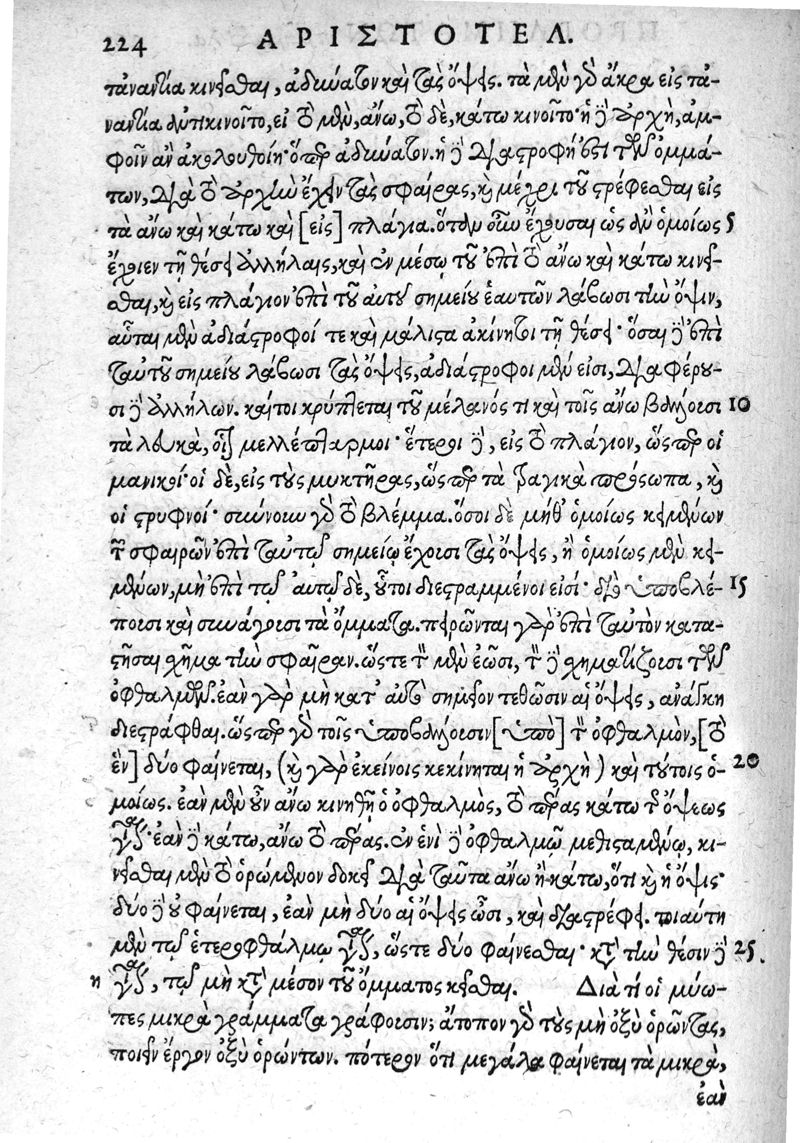 224 ΑΡΙΣΤΟΤΕΛ.
τἀναντία κινεῖσθαι, ἀδύνατον καὶ τὰς ὄψεις. τὰ μὲν γὰρ ἄκρα εἰς τἀ-
ναντία ἀντικινοῖτο, εἰ τὸ μὲν, ἄνω, τὸ δὲ, κάτω κινοῖτο· ἡ δὲ ἀρχὴ, ἀμ-
φοῖν ἂν ἀκολουθοίη· ὅπερ ἀδύνατον. ἡ δὲ διαστροφή ἐστι τῶν ὀμμά-
των, διὰ τὸ ἀρχὴν ἔχειν τὰς σφαίρας, καὶ μέχρι του στρέφεσθαι εἰς
τὰ ἄνω καὶ κάτω καὶ [εἰς] πλάγια. ὅταν οὖν ἔχουσαι ὡς ἂν ὁμοίως 5
ἔχοιεν τῇ θέσει ἀλλήλαις, καὶ ἐν μέσῳ τοῦ ἐπὶ τὸ ἄνω καὶ κάτω κινεῖ-
σθαι, καὶ εἰς πλάγιον ἐπὶ τοῦ αὐτοῦ σημείου ἑαυτῶν λάβωσι τὴν ὄψιν,
αὗται μὲν ἀδιάστροφοί τε καὶ μάλιστα ἀκίνητοι τῇ θέσει· ὅσαι δὲ ἐπὶ
ταὐτοῦ σημείου λάβωσι τὰς ὄψεις, ἀδιάστροφοι μέν εἰσι, διαφέρου-
σι δὲ ἀλλήλων. καίτοι κρύπτεται τοῦ μέλανός τι καὶ τοῖς ἄνω βάλλουσι 10
τὰ λευκὰ, οἷον μελλέπταρμοι· ἕτεροι δὲ, εἰς τὸ πλάγιον, ὥσπερ οἱ
μανικοί· οἱ δὲ, εἰς τοὺς μυκτῆρας, ὥσπερ τὰ τραγικὰ πρόσωπα, καὶ
οἱ στρυφνοί· σύννουν γὰρ τὸ βλέμμα. ὅσοι δὲ μήθ' ὁμοίως κειμένων
τῶν σφαιρῶν ἐπὶ ταὐτῷ σημείῳ ἔχουσι τὰς ὄψεις, ἢ ὁμοίως μὲν κει-
μένων, μὴ ἐπὶ τῷ αὐτῷ δὲ, οὗτοι διεστραμμένοι εἰσί· διὸ ὑποβλέ- 15
πουσι καὶ συνάγουσι τὰ ὄμματα. πειρῶνται γὰρ ἐπὶ ταὐτὸν κατα-
στῆσαι σχῆμα τὴν σφαῖραν. ὥστε τὸν μὲν ἐῶσι, τὸν δὲ σχηματίζουσι τῶν
ὀφθαλμῶν. ἐὰν γὰρ μὴ κατ' αὐτὸ σημεῖον τεθῶσιν αἱ ὄψεις, ἀνάγκη
διεστράφθαι. ὥσπερ γὰρ τοῖς ὑποβάλλουσιν [ὑπὸ] τὸν ὀφθαλμὸν, [τὸ
ἓν] δύο φαίνεται, (καὶ γὰρ ἐκείνοις κεκίνηται ἡ ἀρχὴ) καὶ τούτοις ὁ- 20
μοίως. ἐὰν μὲν οὖν ἄνω κινηθῇ ὁ ὀφθαλμὸς, τὸ πέρας κάτω τῆς ὄψεως
γίνεται· ἐὰν δὲ κάτω, ἄνω τὸ πέρας. ἐν ἑνὶ δὲ ὀφθαλμῷ μεθισταμένῳ, κι-
νεῖσθαι μὲν τὸ ὁρώμενον δοκεῖ διὰ ταῦτα ἄνω ἢ κάτω, ὅτι καὶ ἡ ὄψις·
δύο δὲ οὐ φαίνεται, ἐὰν μὴ δύο αἱ ὄψεις ὦσι, καὶ διαστρέφει. τοιαύτη
μὲν τῷ ἑτεροφθάλμῳ γίνεται, ὥστε δύο φαίνεσθαι· κατὰ τὴν θέσιν δὲ 25.
η γίνεται, τῷ μὴ κατὰ μέσον τοῦ ὄμματος κεῖσθαι. Διὰ τί οἱ μύω-
πες μικρὰ γράμματα γράφουσιν; ἄτοπον γὰρ τοὺς μὴ ὀξὺ ὁρῶντας,
ποιεῖν ἔργον ὀξὺ ὁρώντων. πότερον ὅτι μεγάλα φαίνεται τὰ μικρὰ,
ἐὰν